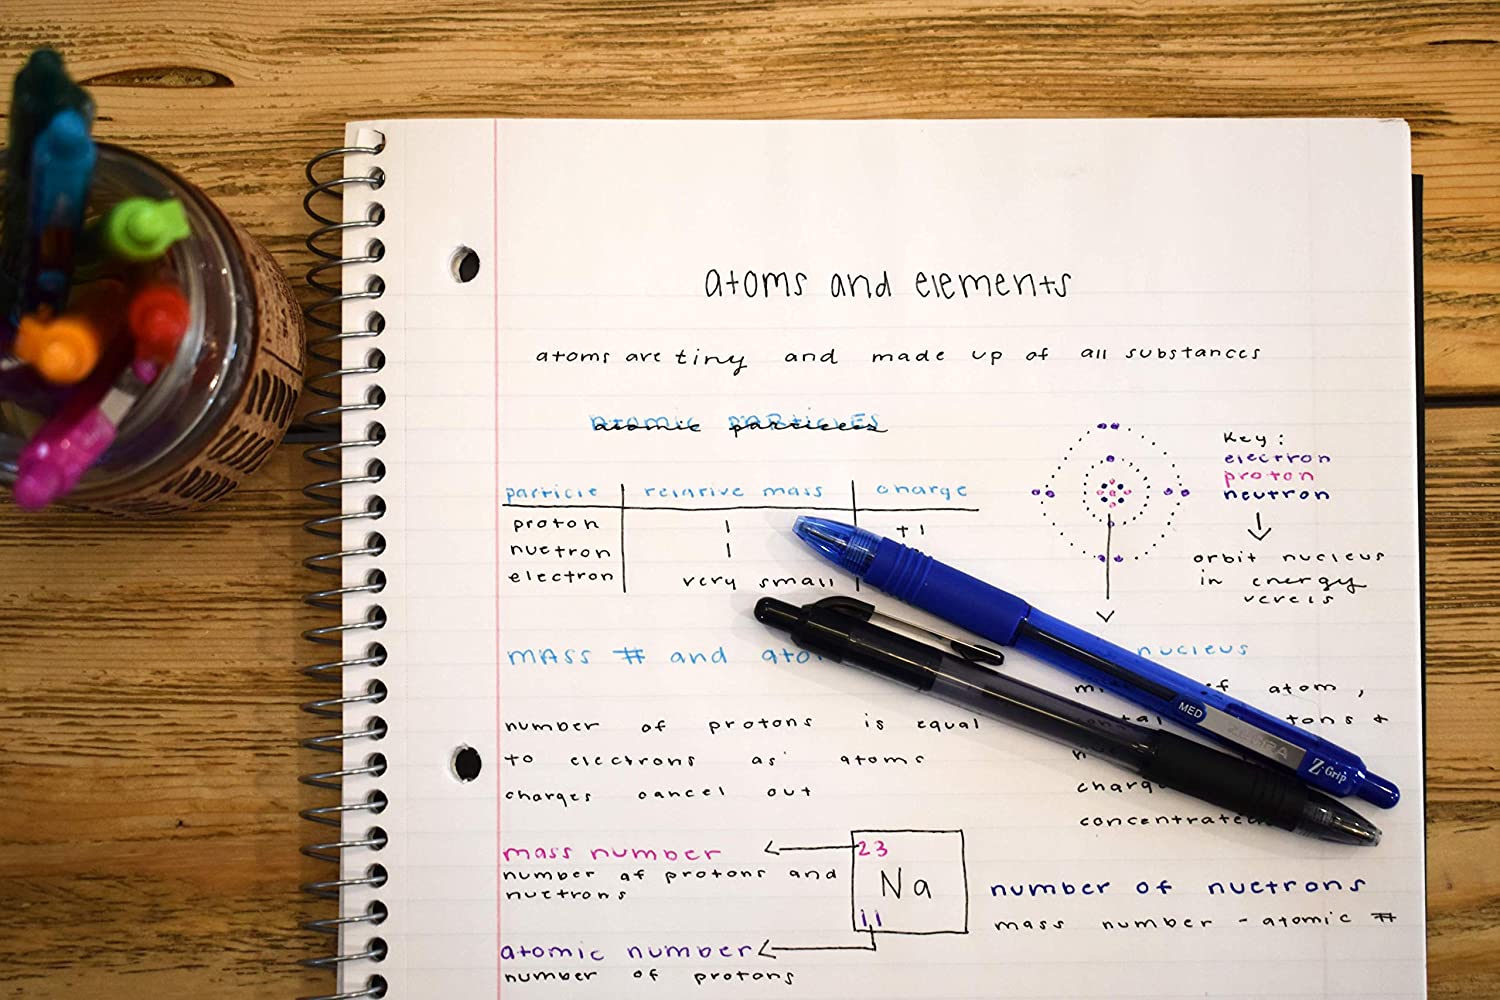 atoms and elements
atoms are tiny and made up of all substances
atomic particles
particle relative mass charge
proton 1 +1
nuetron 1
electron very small
Key:
electron
proton
neutron
orbit nucleus
in energy
levels
mass # and
nucleus
of atom,
&
concentrated
number of protons is equal
to electrons as atoms
charges cancel out
mass number
number of protons and
nuetrons
23
Na
11
number of nuetrons
mass number - atomic #
atomic number
number of protons
MED ZEBRA Z-Grip